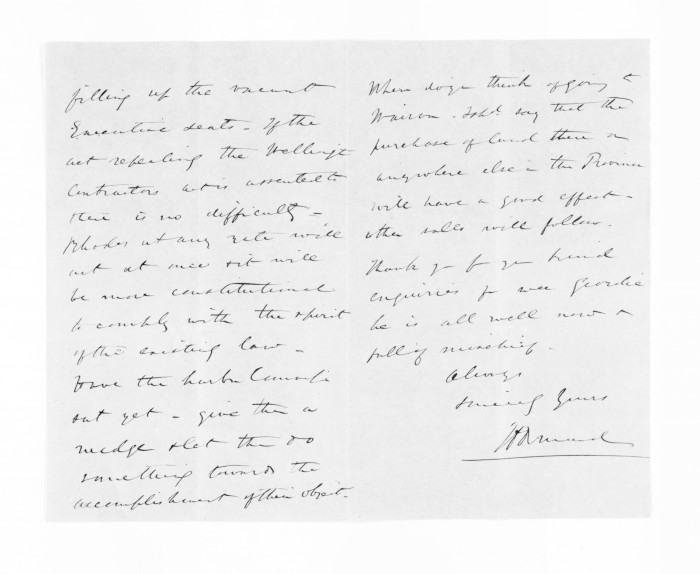 filling up the vacant
Executive seats - If the
act repealing the Wellingt
Contractors act is assented to
there is no difficulty -
Rhodes at any rate will
act at once & it will
be more constitutional
to comply with the spirit
of the existing law -
Have the harbor
sat yet - give them a
nudge & let them do
something towards the
accomplishment of their object.
Where do you think of going to
Wairoa. I shd. say that the
purchase of land there or
anywhere else in the Province
will have a good effect -
other sales will follow.
Thank you for your kind
enquiries for wee Geordie
he is all well now &
full of mischief.
Always
Sincerely Yours
JD Ormond